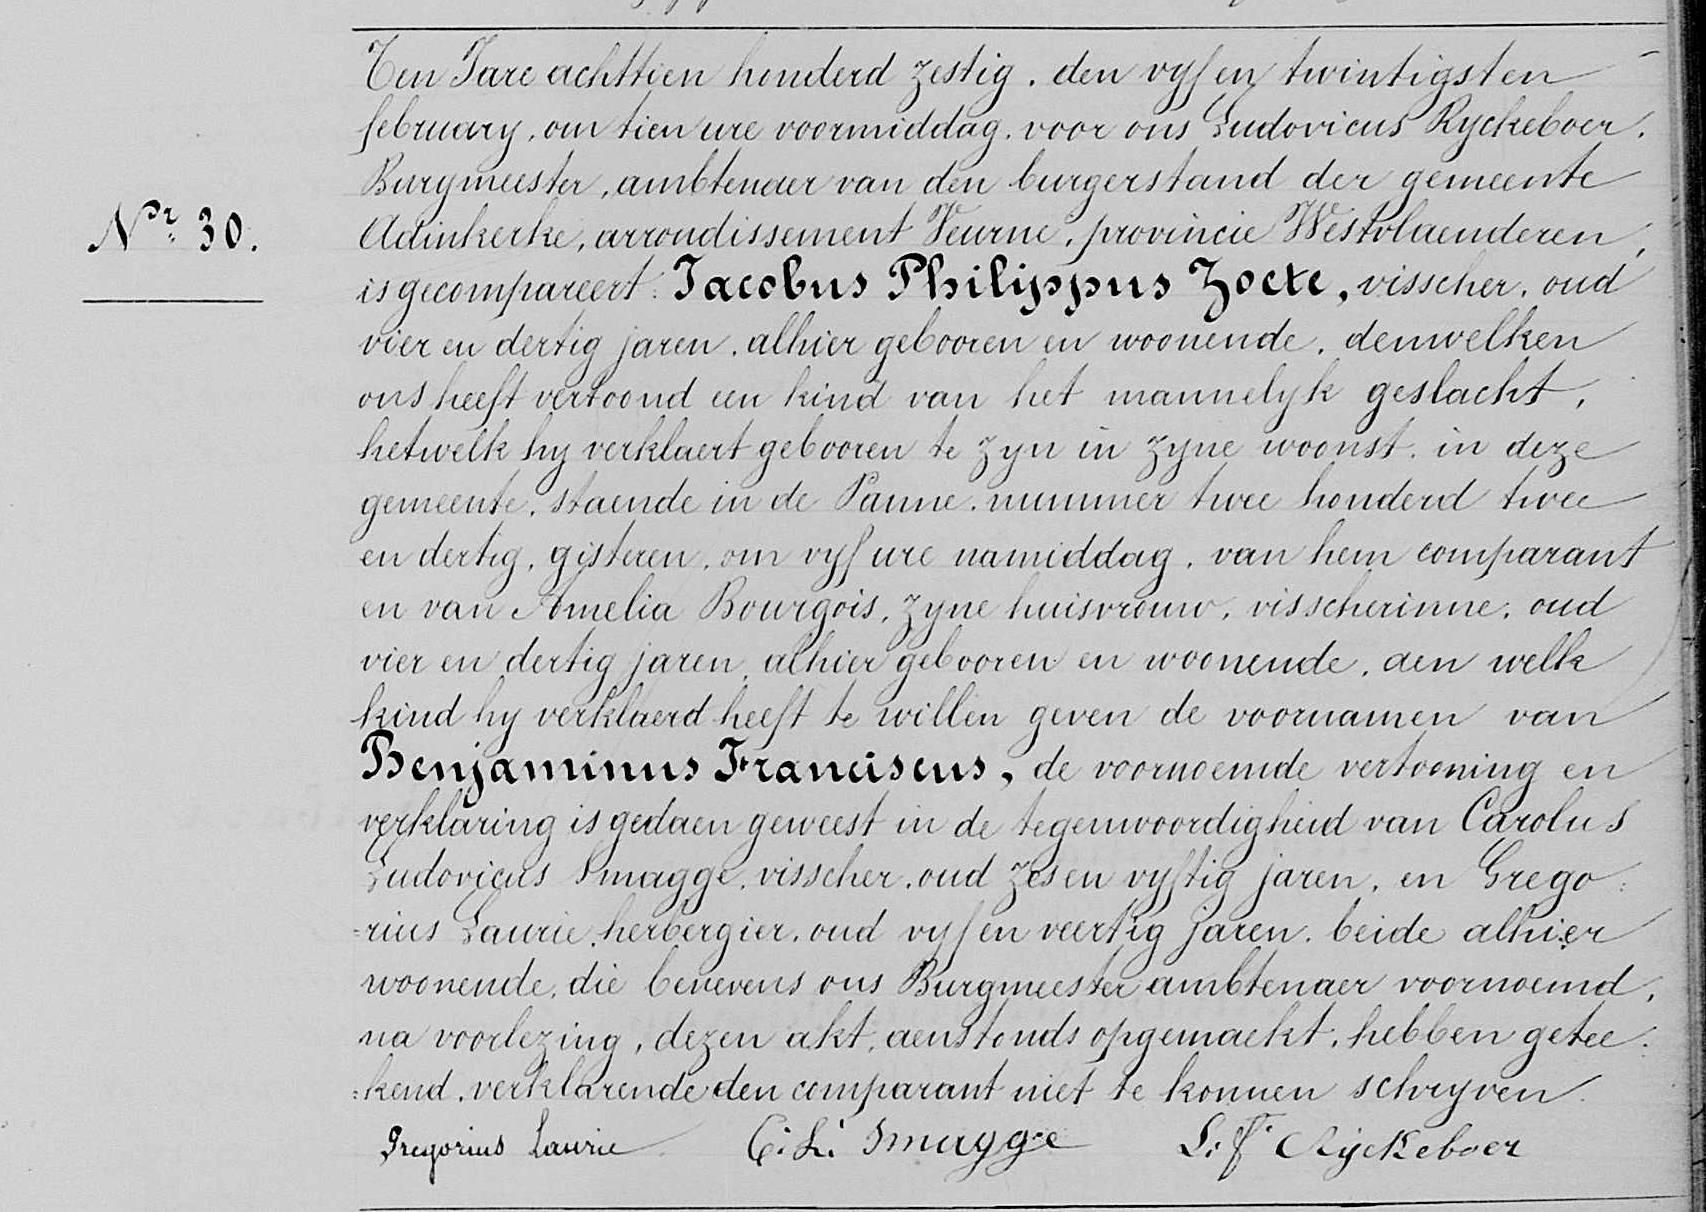 Ten Jare achttien honderd zestig, den vyf en twintigsten
february, om tien ure voormiddag, voor ons Ludovicus Ryckeboer,
Burgmeester, ambtenaer van den burgerstand der gemeente
Adinkerke, arrondissement Veurne, provincie Westvlaenderen,
Nr 30.
is gecompareert: Jacobus Philippus Zoete, visscher, oud
vier en dertig jaren, alhier gebooren en woonende, denwelken
ons heeft vertoond een kind van het mannelyk geslacht,
hetwelk hy verklaert gebooren te zyn in zyne woonst, in deze
gemeente, staende in de Panne, nummer twee honderd twee
en dertig, gisteren, om vyf ure namiddag, van hem comparant
en van Amelia Bourgois, zyne huisvrouw, visscherinne, oud
vier en dertig jaren, alhier gebooren en woonende, aen welk
kind hy verklaerd heeft te willen geven de voornamen van
Benjaminus Franciscus, de voornoemde vertooning en
verklaring is gedaen geweest in de tegenwoordigheid van Carolus
Ludovicus Smagge, visscher, oud zes en vyftig jaren, en Grego=
=rius Laurie, herbergier, oud vyf en veertig jaren, beide alhier
woonende, die benevens ons Burgmeester ambtenaer voornoemd,
na voorlezing, dezen akt, aenstonds opgemaekt, hebben getee=
=kend, verklarende den comparant niet te konnen schryven.
Gregorius Laurie C: L: Smagge L: F Ryckeboer